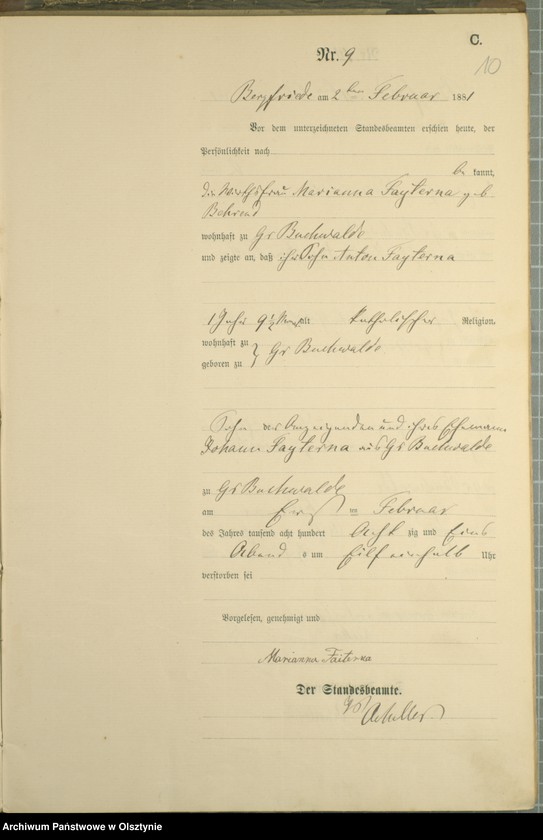 C.
10
Nr. 9
Bergfriede am 2ten Februar 1881
Vor dem unterzeichneten Standesbeamten erschien heute, der
Persönlichkeit nach
be kannt,
die Wirthsfrau Marianna Fayterna geb
Behrend
wohnhaft zu Gr Buchwalde
und zeigte an, daß ihr Sohn Anton Fayterna
1 Jahr 9½ Mon. alt katholischer Religion,
wohnhaft zu
geboren zu } Gr Buchwalde
Sohn der Anzeigenden und ihres Ehemanns
Johann Fayterna aus Gr Buchwalde
zu Gr Buchwalde
am Ersten Februar
des Jahres tausend acht hundert Acht zig und Eins
Abend s um Eilf einhalb Uhr
verstorben sei
Vorgelesen, genehmigt und
Marianna Faiterna
Der Standesbeamte.
Archiwum Państwowe w Olsztynie